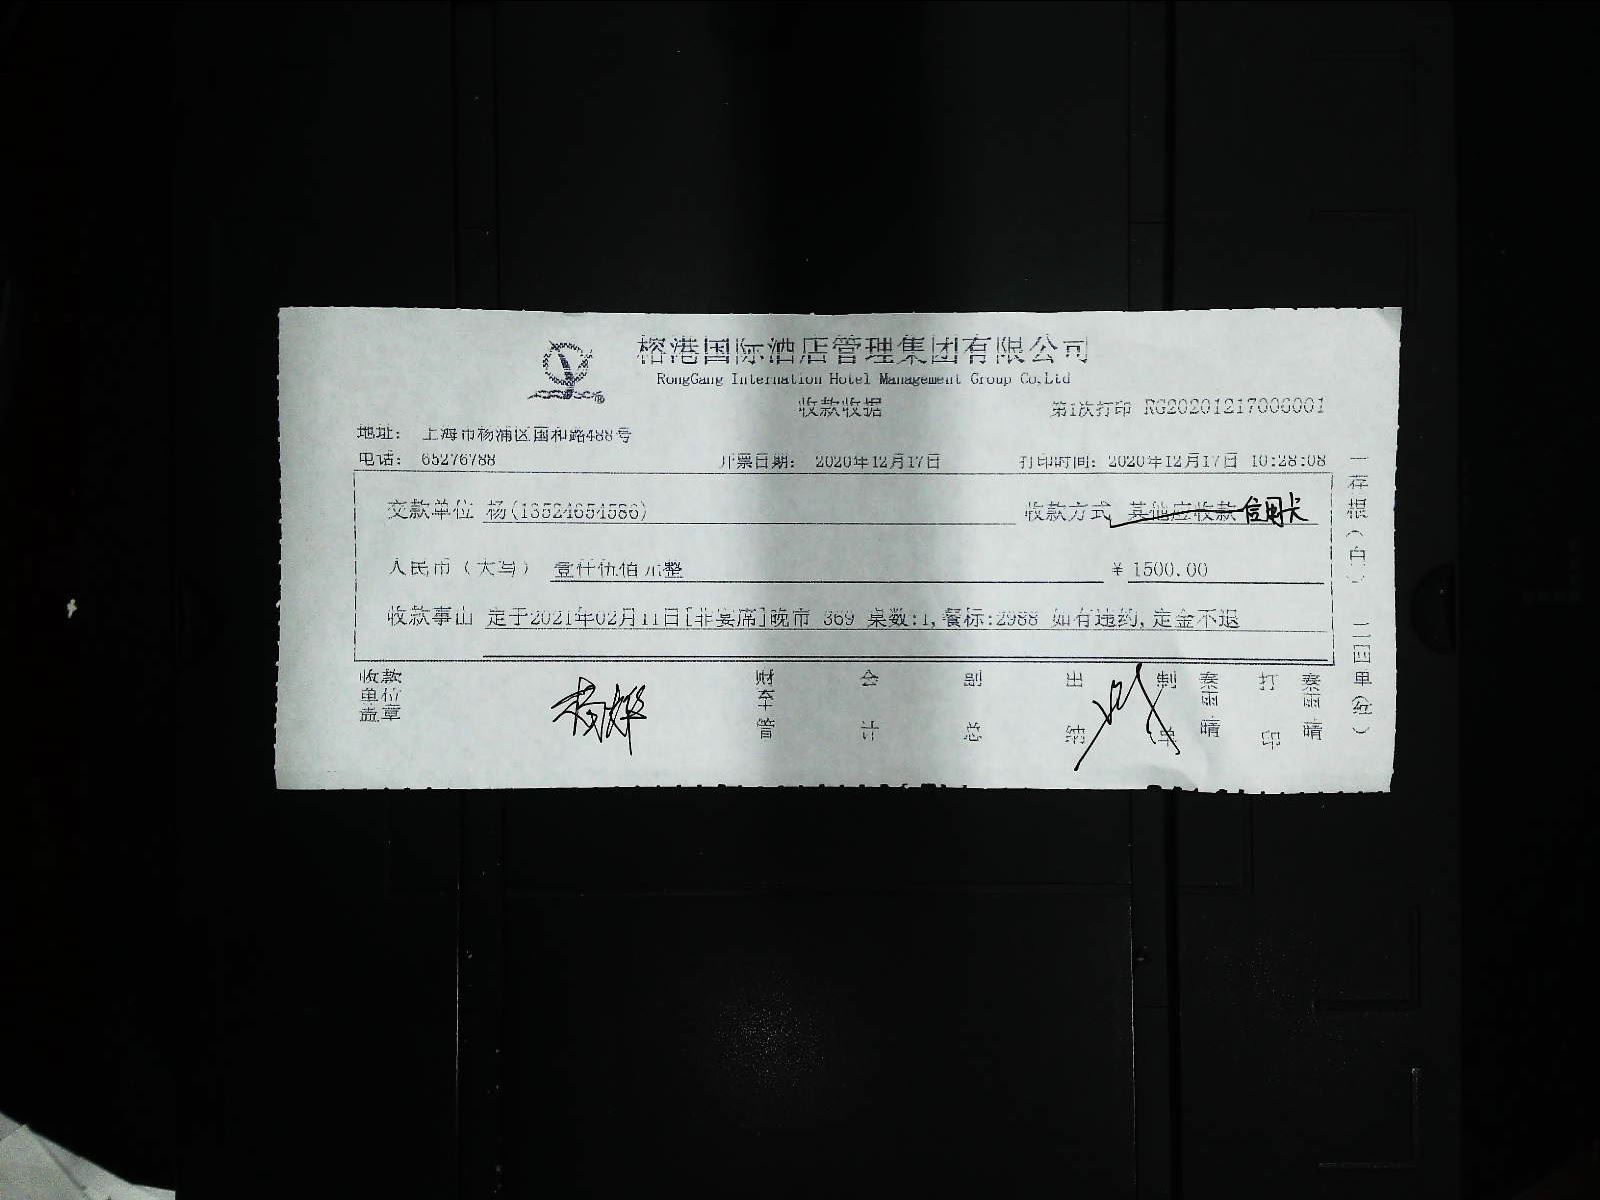 榕港国际酒店管理集团有限公司
RongGang Internation Hotel Management Group Co,Ltd
收款收据
第1次打印 RG20201217006001
地址： 上海市杨浦区国和路488号
电话： 65276788 开票日期： 2020年12月17日 打印时间：2020年12月17日 10:28:08
交款单位 杨(13524654586) 收款方式 其他应收款 信用卡
人民币（大写） 壹仟伍佰元整 ¥ 1500.00
收款事由 定于2021年02月11日[非宴席]晚市 369 桌数:1,餐标:2988 如有违约,定金不退
收款单位盖章 杨烨 财务主管 会计 副总 出纳 制单 秦雨晴 打印 秦雨晴
一存根（白） 二回单（红）